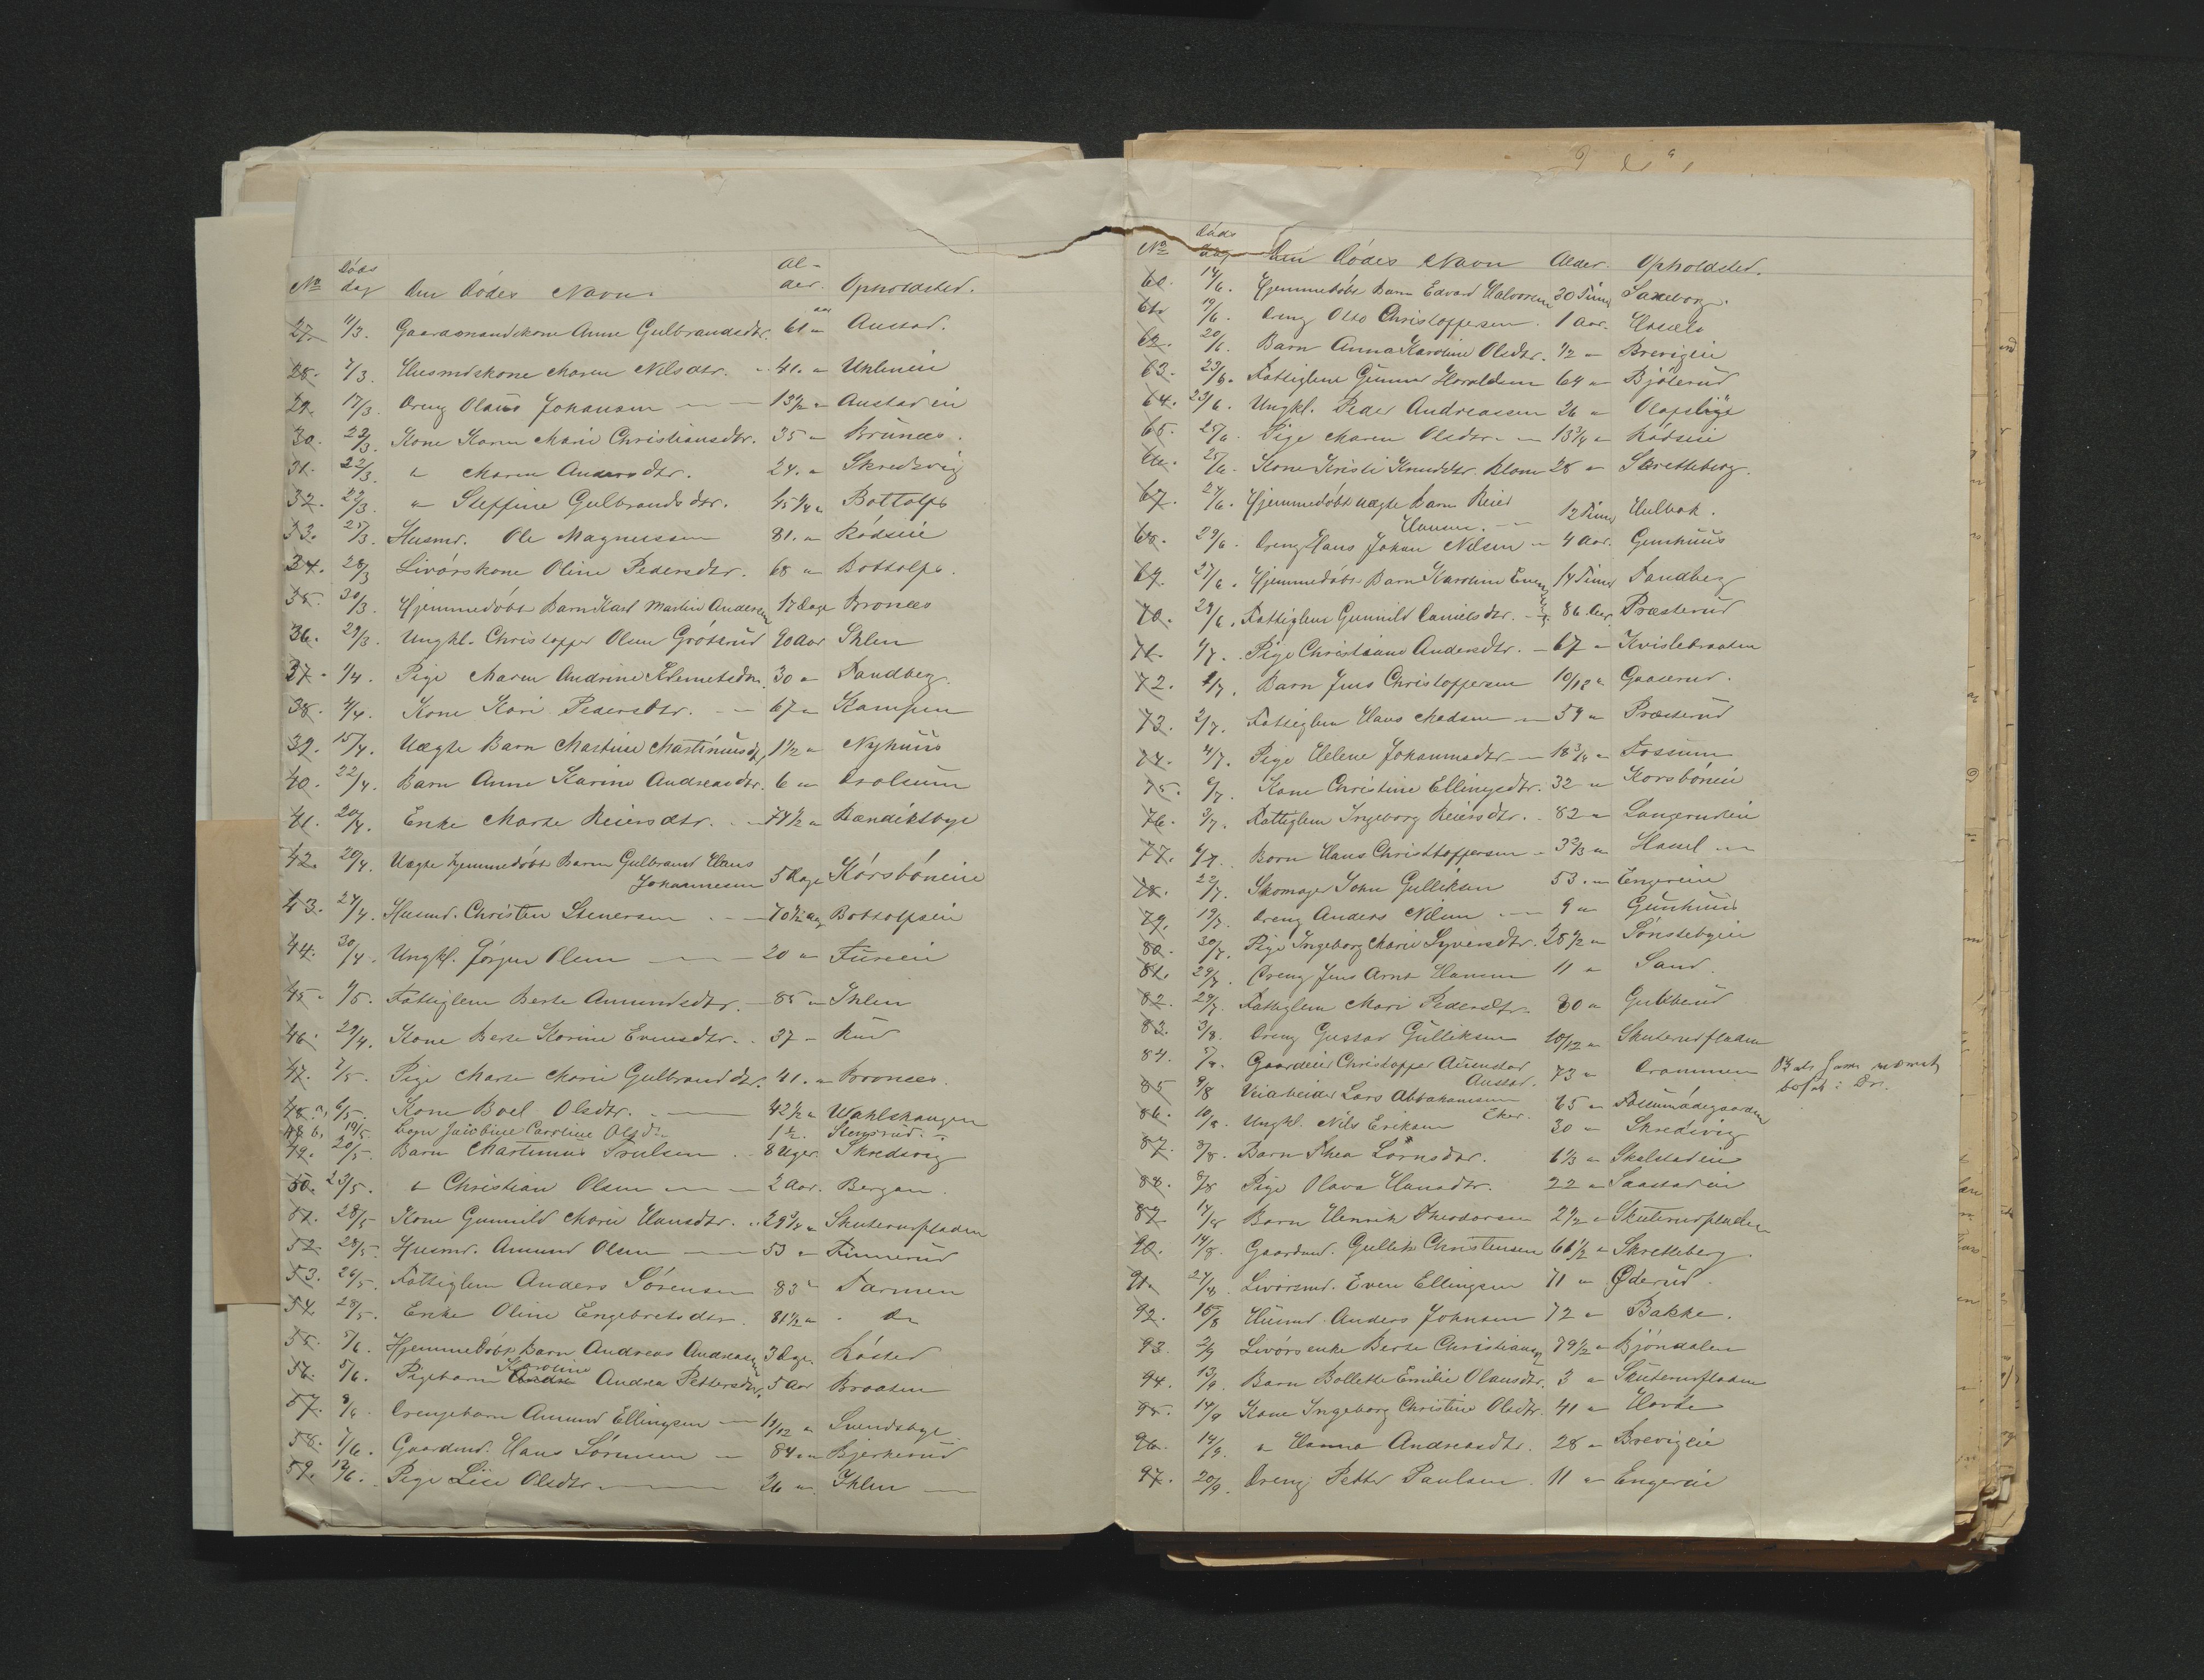 Døds Al-
No dag Den Dødes Navn. der. Opholdsted.
27. 11/3. Gaardmandskone Anne Gulbrandsdtr. 61 aar Austad.
28. 7/3. Husmdskone Maren Nilsdtr. 41. "
29. 17/3. Dreng Olaus Johansen 13 1/2 " Austadeie
30. 22/3. Kone Karen Marie Christiansdtr. 35 " Brunæs.
31. 22/3 " Maren Andersdtr. 24. " Skredsvig
32. 22/3. " Steffine Gulbrandsdtr. 45 1/4 " Bottolfs
33. 25/3. Husmd. Ole Magnussen 81. " Rødseie
34. 28/3 Livørskone Oline Pedersdtr. 68 " Bottolfs.
35. 30/3. Hjemmedøbt Barn Karl Martin Andersen 17 Dage Bronæs
36. 29/3. Ungkl. Christopher Olsen Grøterud 90 Aar Ihlen
37. 1/4. Pige Maren Andrine Klemetsdtr. 30 " Sandberg.
38. 4/4. Kone Kari Pedersdtr. 67 " Kampen
39. 15/4. Uægte Barn Martine Martinusdtr. 1 1/2 " Nyhuus
40. 22/4. Barn Anne Karine Andreasdtr. 6 " Drolsum
41. 20/4. Enke Marte Reiersdtr. 74 1/2 " Bændiktsbye
42. 20/4. Uægte hjemmedøbt Barn Gulbrand Hans
Johannesen 5 Dage Korsbøneie
43. 27/4. Husmd. Christen Stenersen 70 1/2 Aar Bottolfseie
44. 30/4. Ungkl. Jørgen Olsen 20 " Fureeie
45. 1/5. Fattiglem Berte Amundsdtr. 85 " Ihlen
46. 29/4. Kone Berte Karine Evensdtr. 37 " Rud
47. 7/5. Pige Marte Marie Gulbrandsdtr. 41. " Bronæs.
48 a, 6/5. Kone Boel Olsdtr. 42 1/2 " Wahlshaugen
48 b, 19/5. Barn Jacobine Caroline Olsdtr. 1 1/2. Stensrud.
49. 20/5. Barn Martinus Truelsen 8 Uger. Skredsvig
50. 23/5. " Christian Olsen 2 Aar. Bergan.
51. 28/5 Kone Gunnild Marie Hansdtr. 29 3/4 " Skuterudfladen
52. 28/5. Husmd. Amund Olsen 53 " Finnerud
53. 26/5. Fattiglem Anders Sørensen 83 " Tarmen
54. 28/5. Enke Oline Engebretsdtr. 81 1/2 " Do
55. 5/6. Hjemmedøbt Barn Andreas Andreasen 3 Dage.
Karoline
56. 5/6. Pigebarn Andrea Pettersdtr. 5 Aar Braaten
57. 8/6. Drengebarn Amund Ellingsen 11/12 " Svendsbye
58. 7/6. Gaardmd. Hans Sørensen 84 " Bjerkerud
59. 12/6. Pige Lise Olsdtr. 26 " Ihlen
Døds
No dag Den Dødes Navn Alder. Opholdsted.
60. 14/6. Hjemmedøbt Barn Edvard Halvorsen 30 Timer Saxeborg.
61. 19/6. Dreng Otto Christoffersen. 1 Aar.
62. 20/6. Barn Anna Karoline Olsdtr. 1/2 " Brevigeie
63. 23/6. Fattiglem Gunner Haraldsen 64 " Bjølerud
64. 23/6. Ungkl. Peder Andreassen 26 " Olafsbye
65. 25/6. Pige Maren Olsdtr. 13 3/4 " Rødseie
66. 25/6. Kone Kristi Knudsdtr. 28 " Skretteberg.
67. 27/6. Hjemmedøbt uægte Barn Reier
Hansen. 12 Timer Hulbak.
68. 29/6. Dreng Hans Johan Nilsen 4 Aar. Gunhuus
69. 27/6. Hjemmedøbt Barn Karoline 14 Timer Sandberg
70. 29/6. Fattiglem Gunnild Danielsdtr. 86 Aar. Præsterud
71. 1/7. Pige Christiane Andersdtr. 67 " Kvislebraaten
72. 1/7. Barn Jens Christoffersen 10/12 " Gaaserud.
73. 2/7. Fattiglem Hans Madsen 59 " Præsterud
74. 4/7. Pige Helene Johannesdtr. 18 3/4 " Fossum
75. 6/7. Kone Christine Ellingsdtr. 32 " Korsbøneie
76. 3/7. Fattiglem Ingeborg Reiersdtr. 82 " Langerudeie
77. 6/7. Barn Hans Christoffersen 3 2/3 "
78. 22/7. Skomager John Gulliksen 53. " Engereie
79. 19/7. Dreng Anders Nilsen 9 " Gunhuus
80. 30/7. Pige Ingeborg Marie Syversdtr. 28 1/2 " Sønstebyeie
81. 29/7. Dreng Jens Arnt Hansen 11 " Sand.
82. 29/7. Fattiglem Mari Pedersdtr. 80 " Gubberud
83. 3/8. Dreng Gustav Gulliksen 10/12 " Skuterudfladen
84. 5/8. Gaardeier Christopher
Austad. 73 " Drammen
85 9/8 Veiarbeider Lars Abrahamsen
Eker. 65 "
86. 10/8. Ungkl. Nils Eriksen 30 " Skredsvig
87. 8/8. Barn Thea Larsdtr. 6 1/3 " Skalstadeie
88. 9/8 Pige Olava Hansdtr. 22 " Saastadeie
89 14/8 Barn Henrik Theodorsen 2 1/2 " Skuterudfladen
90. 14/8. Gaardmd. Gullik Christensen 61 1/2 " Skretteberg.
91. 27/8 Livørsmd. Even Ellingsen 71 " Øderud.
92. 15/8 Husmd. Anders Johnsen 72 " Bakke.
93. 2/9 Livørsenke Berte Christiansdtr 79 1/2 " Bjøndalen
94. 13/9. Barn Bollette Emilie Olausdtr. 3 " Skuterudfladen
95. 14/9 Kone Ingeborg Christine Olsdtr. 41 " Hovde
96. 14/9. " Hanna Andreasdtr. 28 " Brevigeie
97. 20/9. Dreng Petter Paulsen. 11 " Engereie